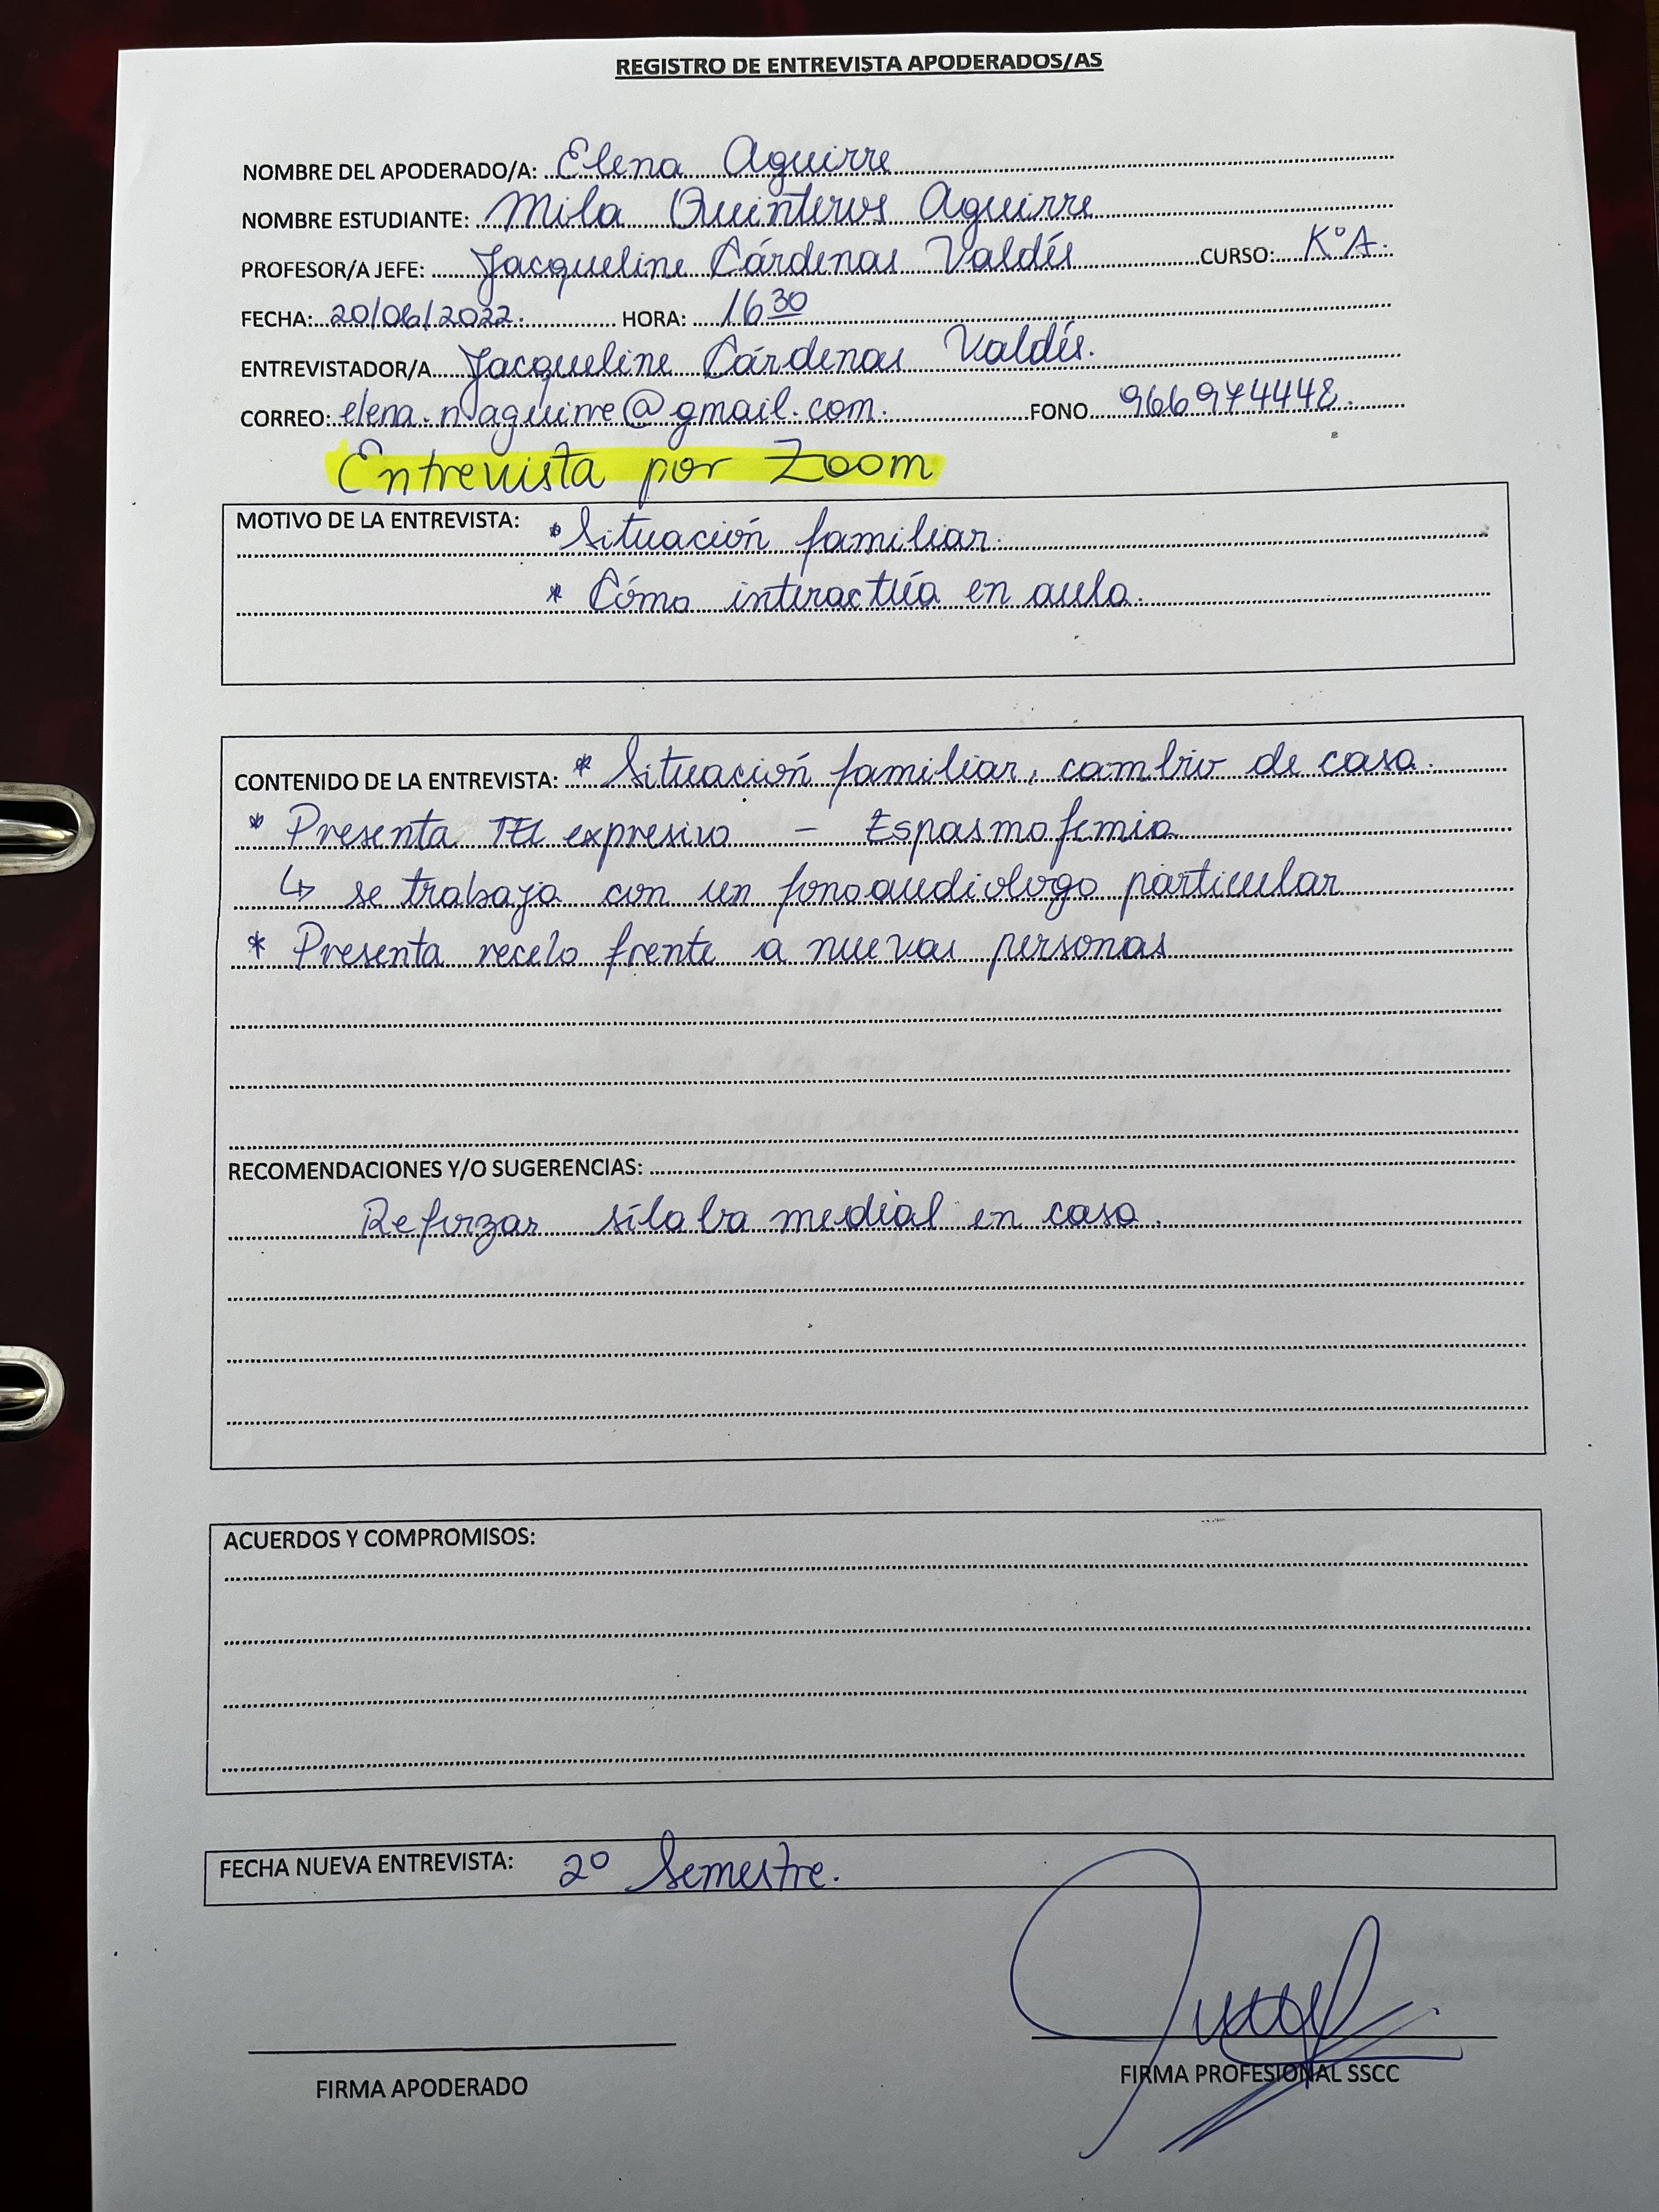 REGISTRO DE ENTREVISTA APODERADOS/AS
NOMBRE DEL APODERADO/A: Elena Aguirre
NOMBRE ESTUDIANTE: Mila Quinteros Aguirre
PROFESOR/A JEFE: Jacqueline Cárdenas Valdés CURSO: K°A.
FECHA: 20/06/2022. HORA: 16 30
ENTREVISTADOR/A Jacqueline Cárdenas Valdés.
CORREO: elena.n.aguirre@gmail.com. FONO 966974448.
Entrevista por Zoom
MOTIVO DE LA ENTREVISTA: * Situación familiar.
* Cómo interactúa en aula.
CONTENIDO DE LA ENTREVISTA: * Situación familiar, cambio de casa.
* Presenta TEL expresivo – Espasmofemia
↳ se trabaja con un fonoaudiologo particular
* Presenta recelo frente a nuevas personas
RECOMENDACIONES Y/O SUGERENCIAS:
Reforzar sílaba medial en casa.
ACUERDOS Y COMPROMISOS:
FECHA NUEVA ENTREVISTA: 2° Semestre.
FIRMA APODERADO
FIRMA PROFESIONAL SSCC